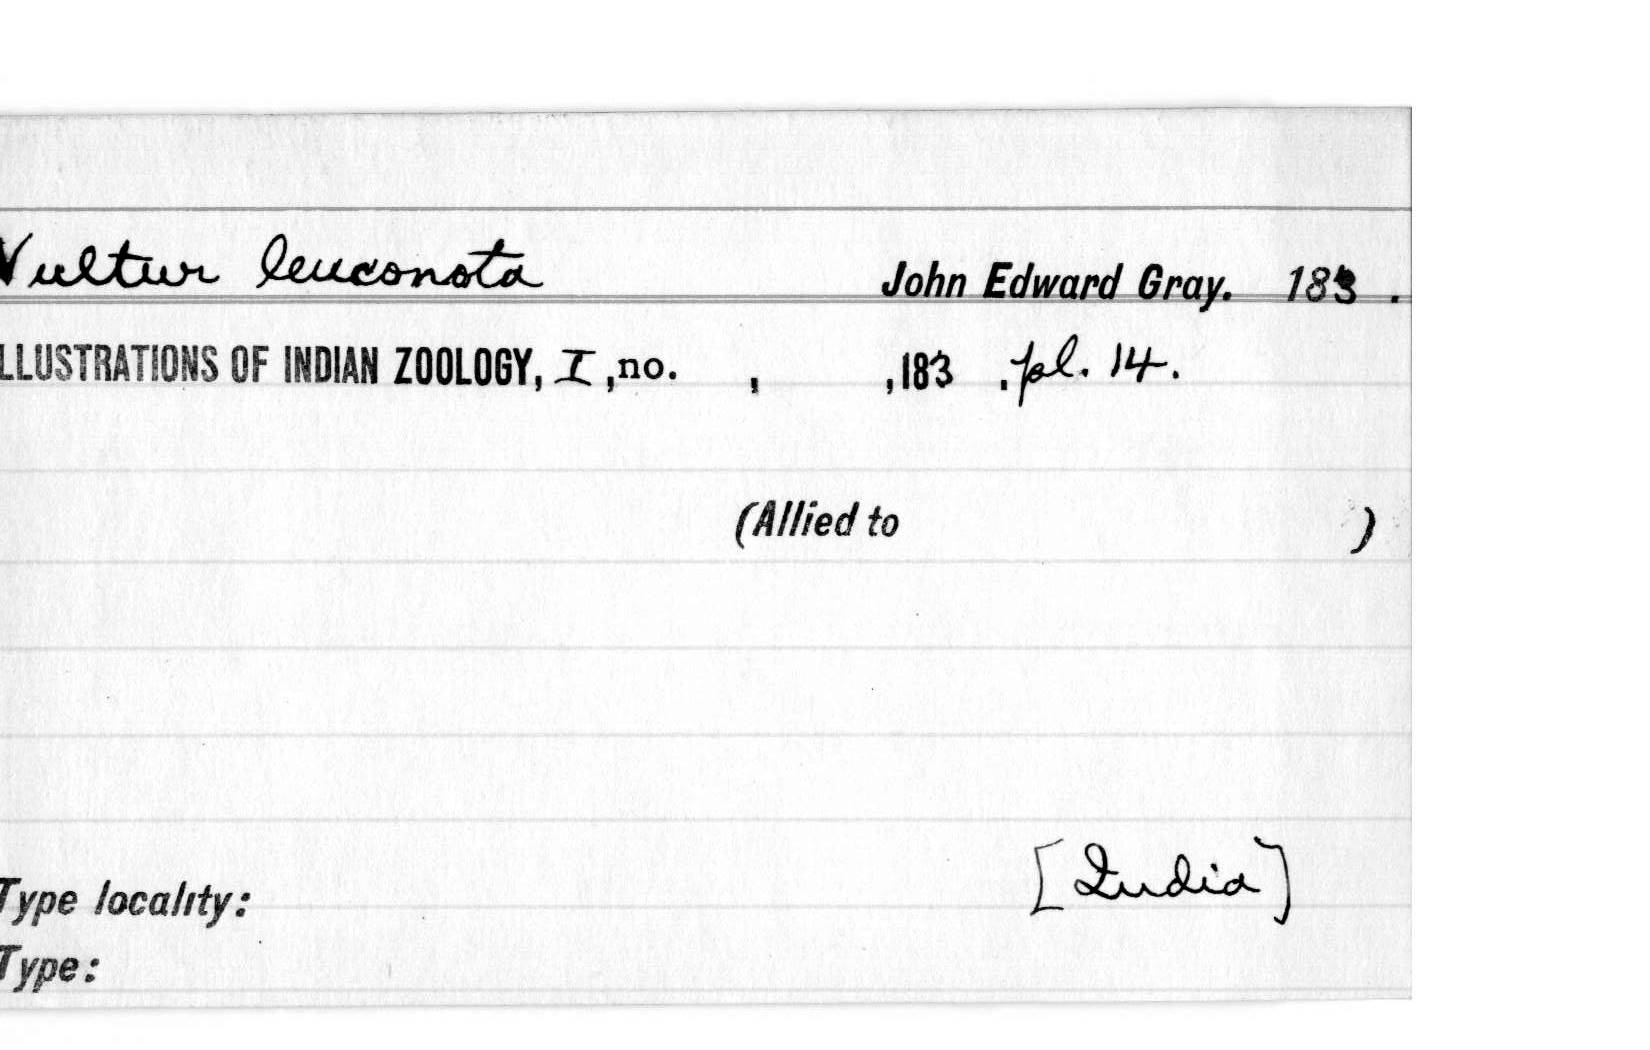 Vultur leuconota John Edward Gray. 183 .
LLUSTRATIONS OF INDIAN ZOOLOGY, I ,no. , ,183 , pl. 14.
(Allied to )
Type locality: [India]
Type: